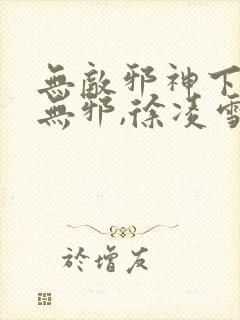 無敵邪神下
無邪,徐凌雪
於增友